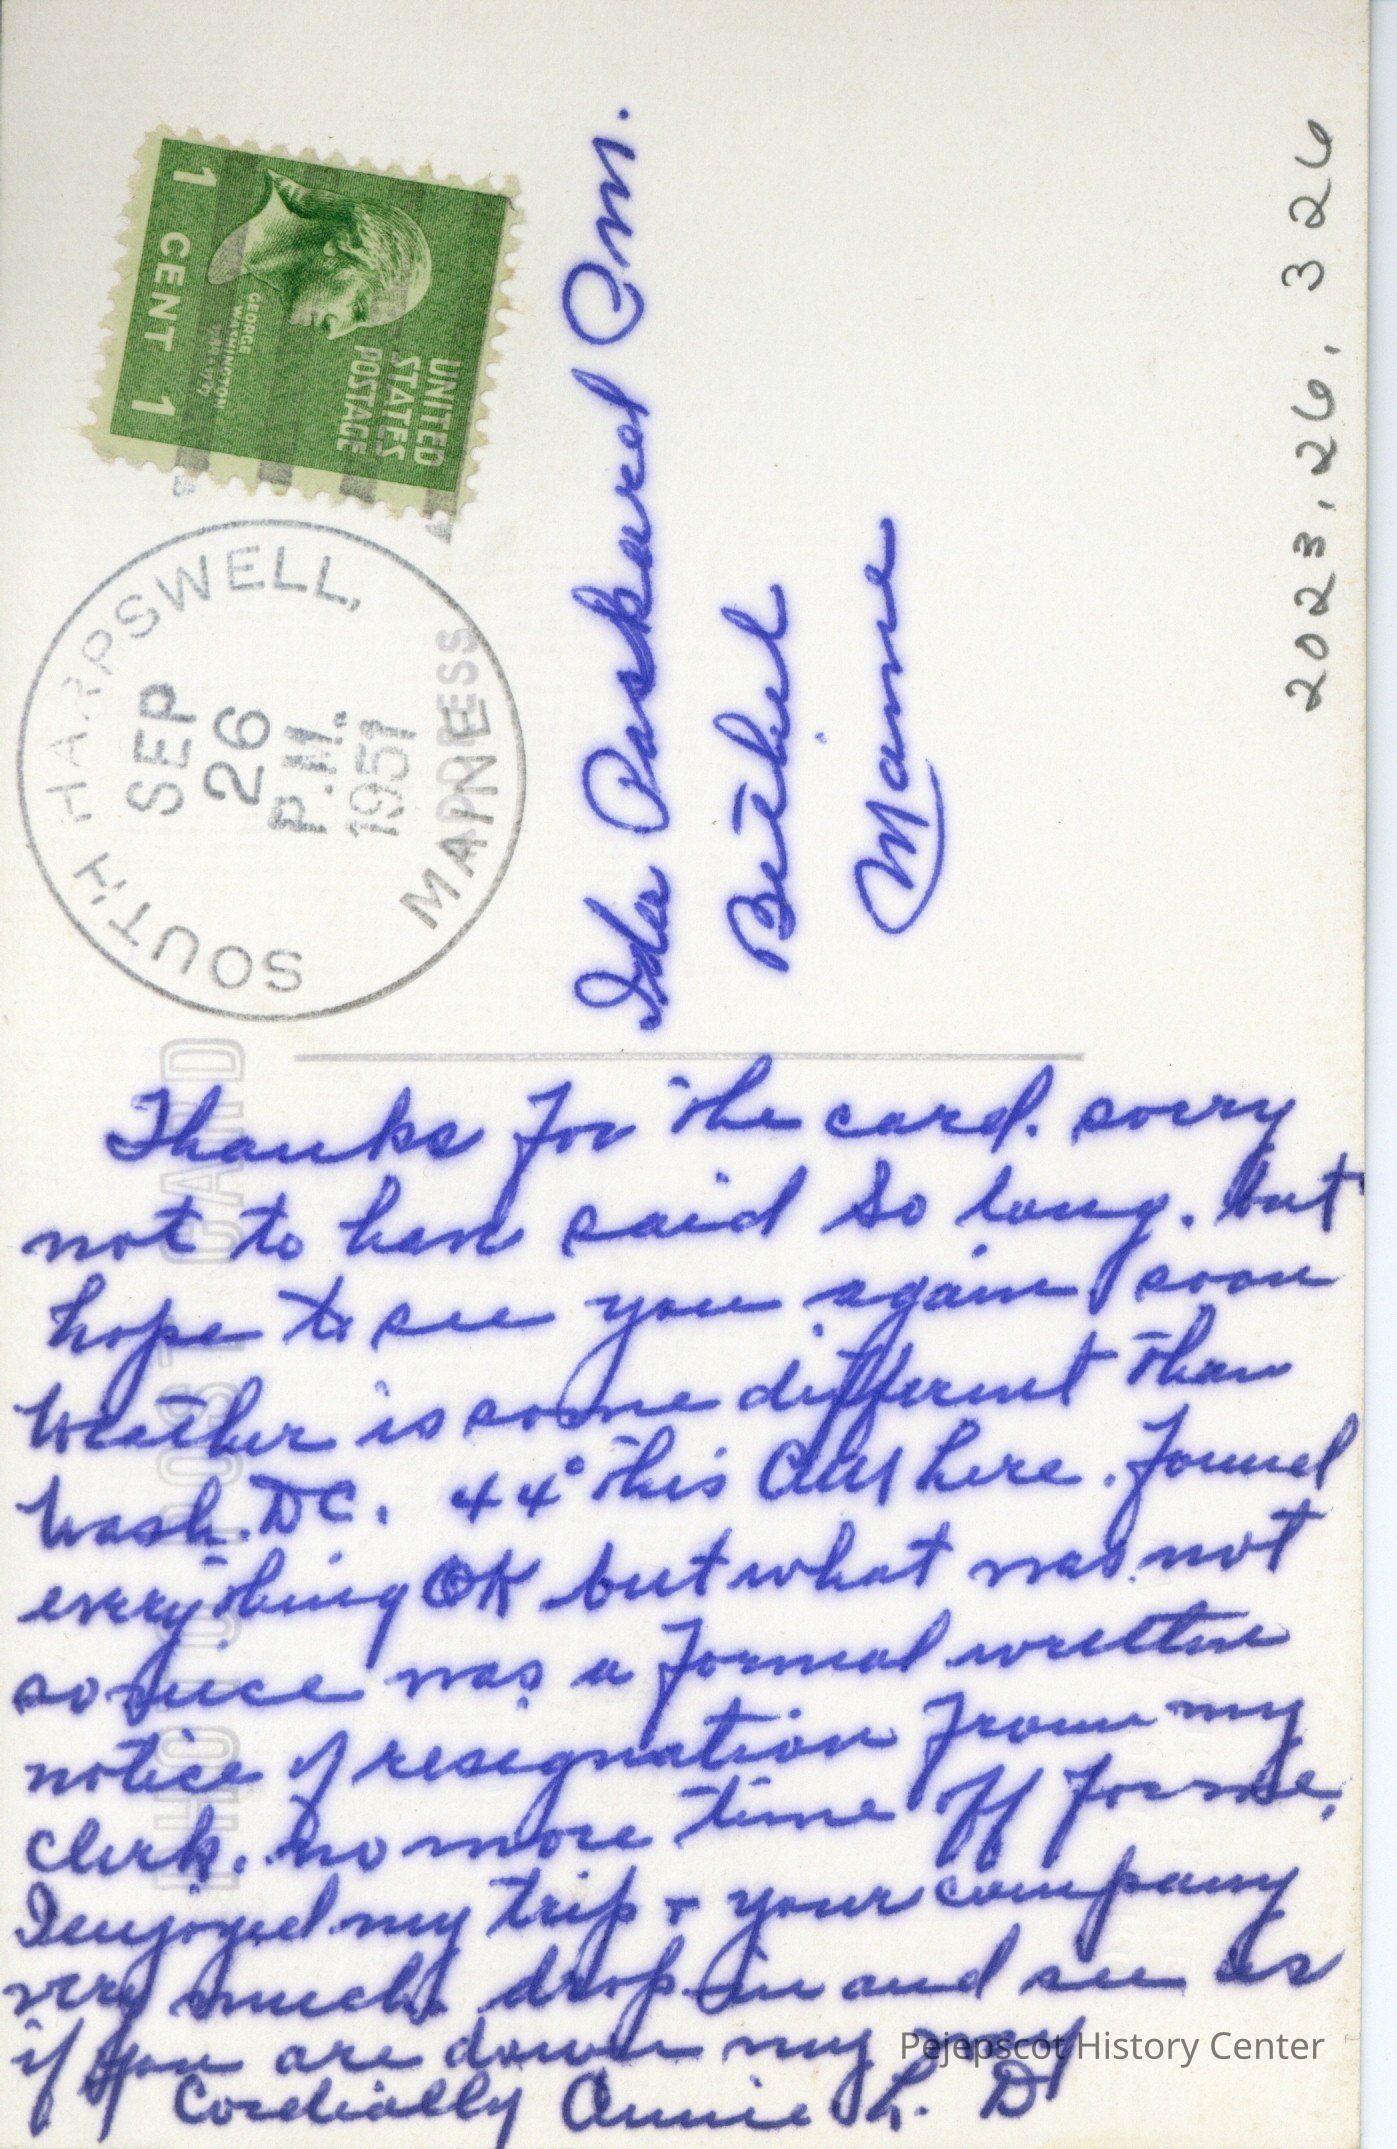 1 CENT 1
GEORGE
WASHINGTON
UNITED
STATES
POSTAGE
SOUTH HARPSWELL,
MAINE
SEP
26
P.M.
1951
PHOTO POST CARD
ADDRESS
Ida Paskared P.M.
Bethel
Maine
2023.26.326
Thanks for the card. sorry
not to have said So long. but
hope to see you again soon
Weather is some different than
Wash. DC. 44° this AM here. Found
everything OK but what was not
so nice was a formal written
notice of resignation from my
clerk. no more time off for me.
I enjoyed my trip + your company
very much. drop in and see us
if you are down my way
Cordially Annie L. D
Pejepscot History Center